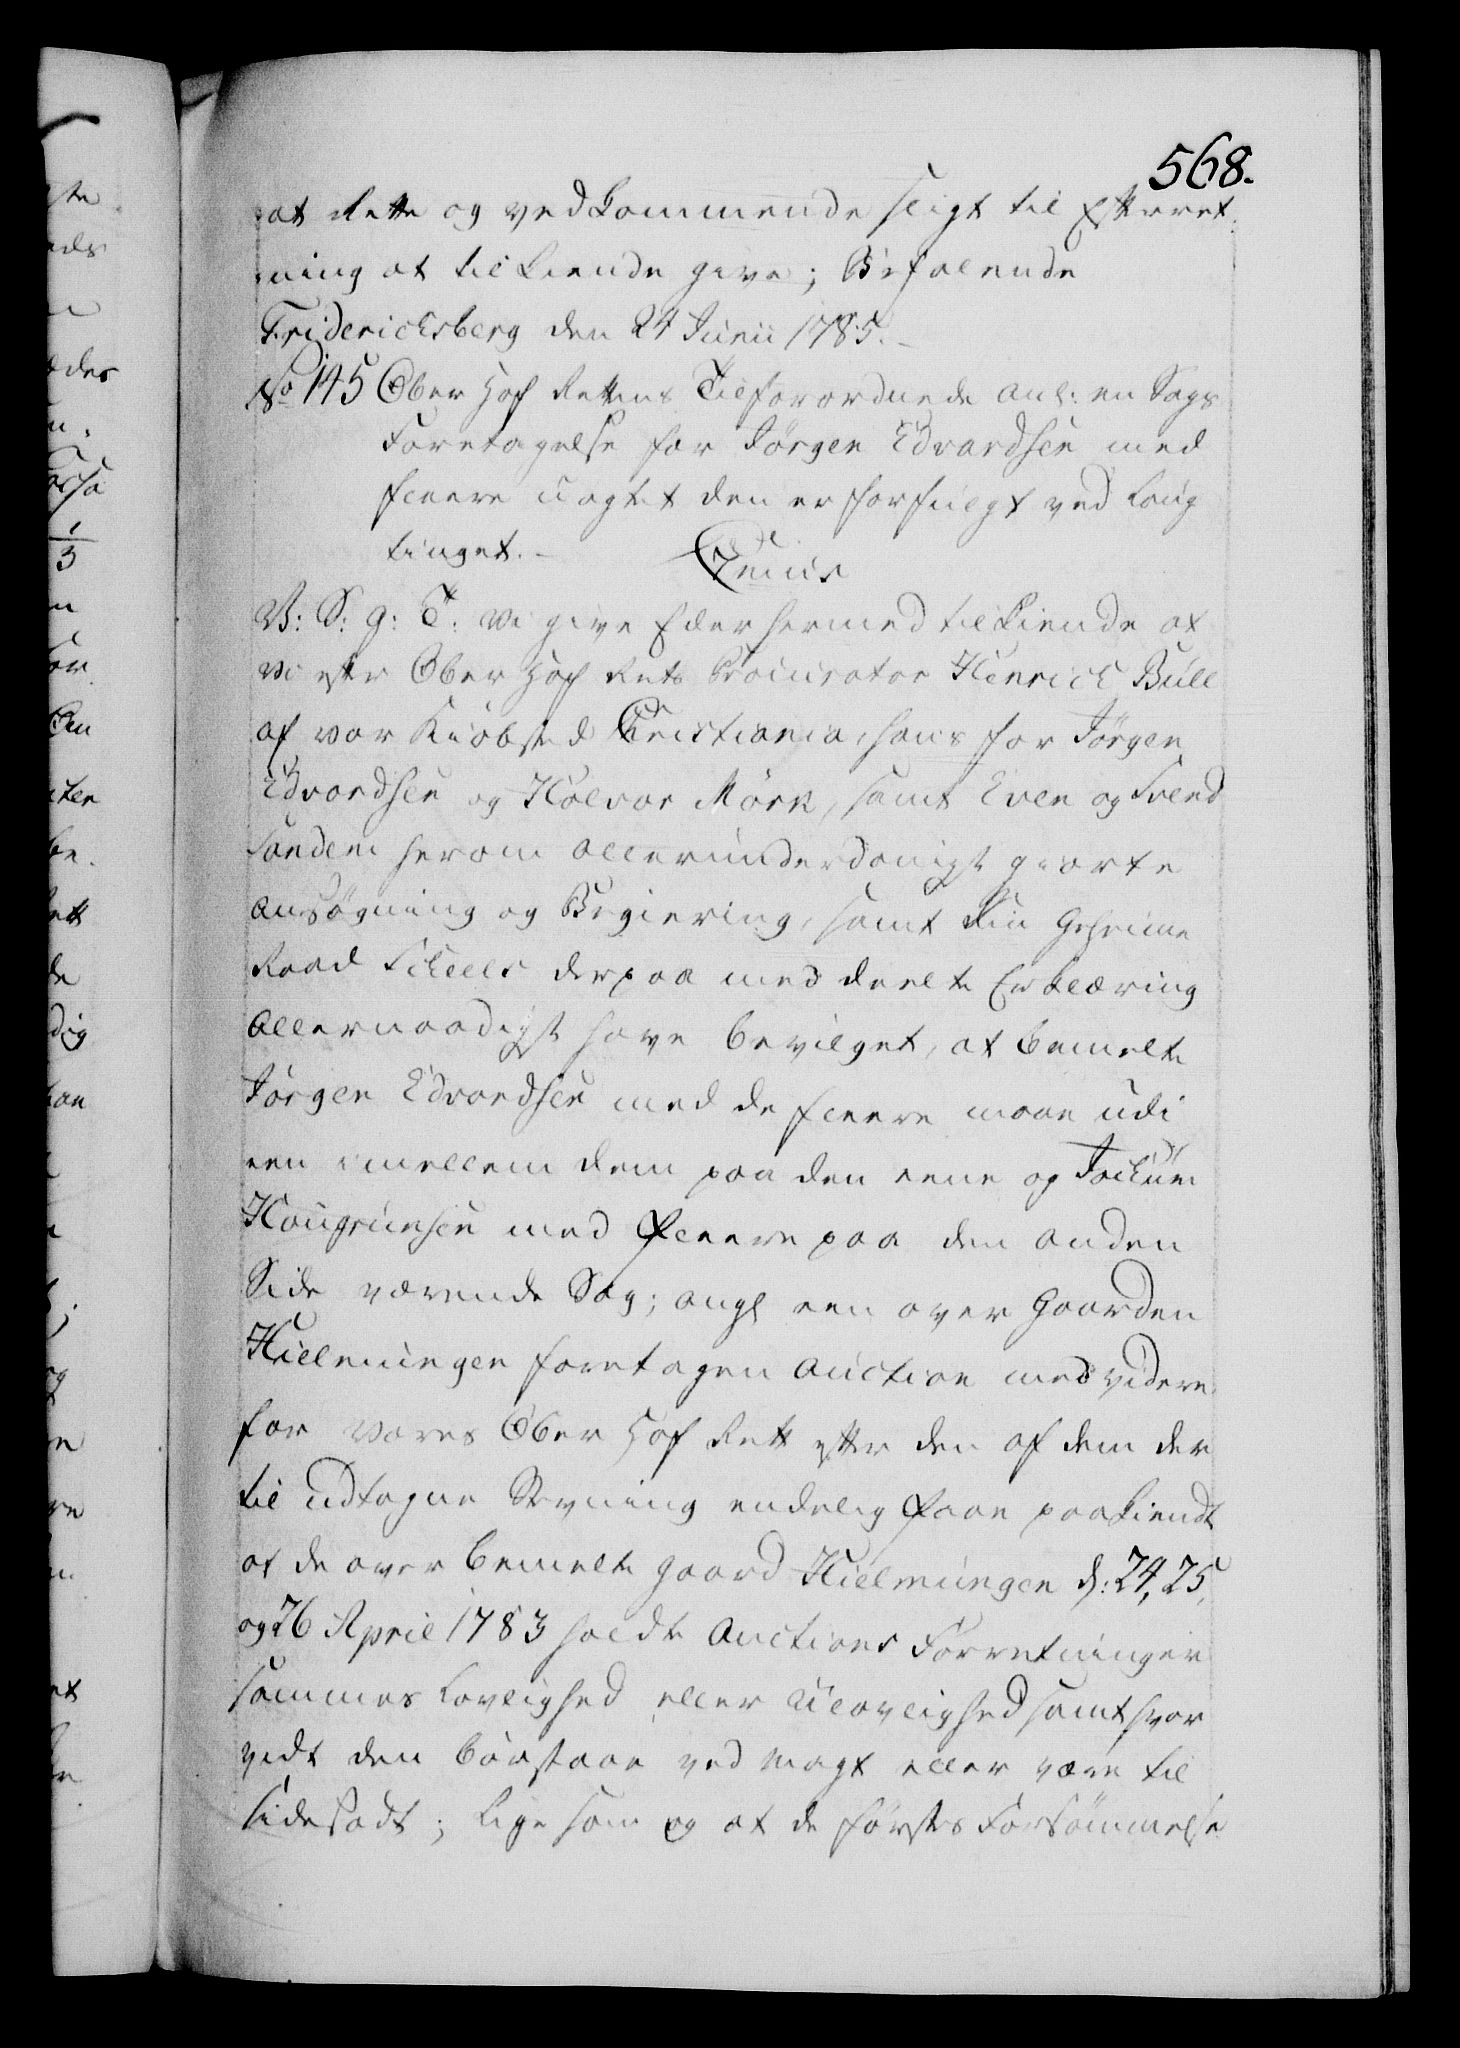 568.
at Rette og vedkommende sligt til Efterret-
ning at tilkiende give; Befalende
Friderichsberg den 24 Junii 1785.-
No 145 Ober Hof Rettens Tilforordnede anl: en Sags
Foretagelse for Jörgen Edvardsen med
fleere uagtet den er forfulgt ved Laug
tinget.-
C 7mus
V: S: g: T: Vi give Eder hermed tilkiende at
Vi efter Ober Hof Rets Procurator Henrich Bull
af vor Kiöbsted Christiania, hans for Jörgen
Edvardsen og Halvor Mörk, samt Even og Svend
Sandem herom allerunderdanigst giorte
Ansögning og Begiering, samt Geheime
Raad Scheels derpaa meddeelte Erklæring
Allernaadigst have bevilget, at bemelte
Jörgen Edvardsen med de fleere maae udi
een imellem dem paa den eene og Jochum
Haugruesen med fleere paa den anden
Side værende Sag; angl een over Gaarden
Hielmungen foretagen Auction med videre,
for Vores Ober Hof Rett efter den af dem der
til udtagne Stevning endelig faae paakiendt
at de over bemelte gaard Hielmungen d: 24, 25,
og 26 April 1783 holdte Auctions Forretninger
sammes Lovlighed eller Ulovlighed samt hvor
vidt den bör staae ved magt eller være til
sidesadt; ligesom og at de förstes Forsömmelse